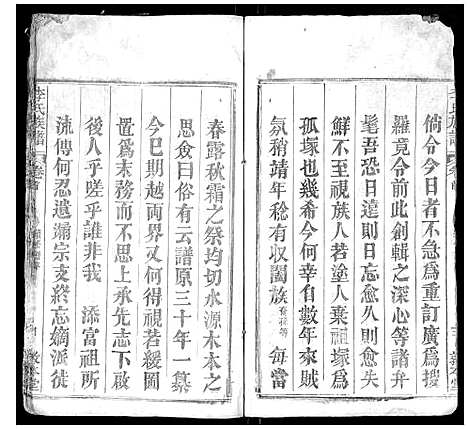 李氏族譜
卷首
倘今今日者不急為重訂廣為搜
羅竟令前此創輯之深心等諸弁
髦吾恐日遠則日忘愈久則愈失
鮮不至視族人若塗人棄祖塚為
孤塚也幾希今何幸自數年來賊
氛稍靖年稔有收闔族 每當
春露秋霜之祭均切水源木本之
思僉曰俗有云譜原三十年一纂
今已期越兩界又何得任若緩圖
置為末務而不思上承先志下啟
後人乎嗟乎誰非我 添富祖所
流傳何忍遺漏宗支終忘嫡派徒
李氏族譜
卷首
敦本堂